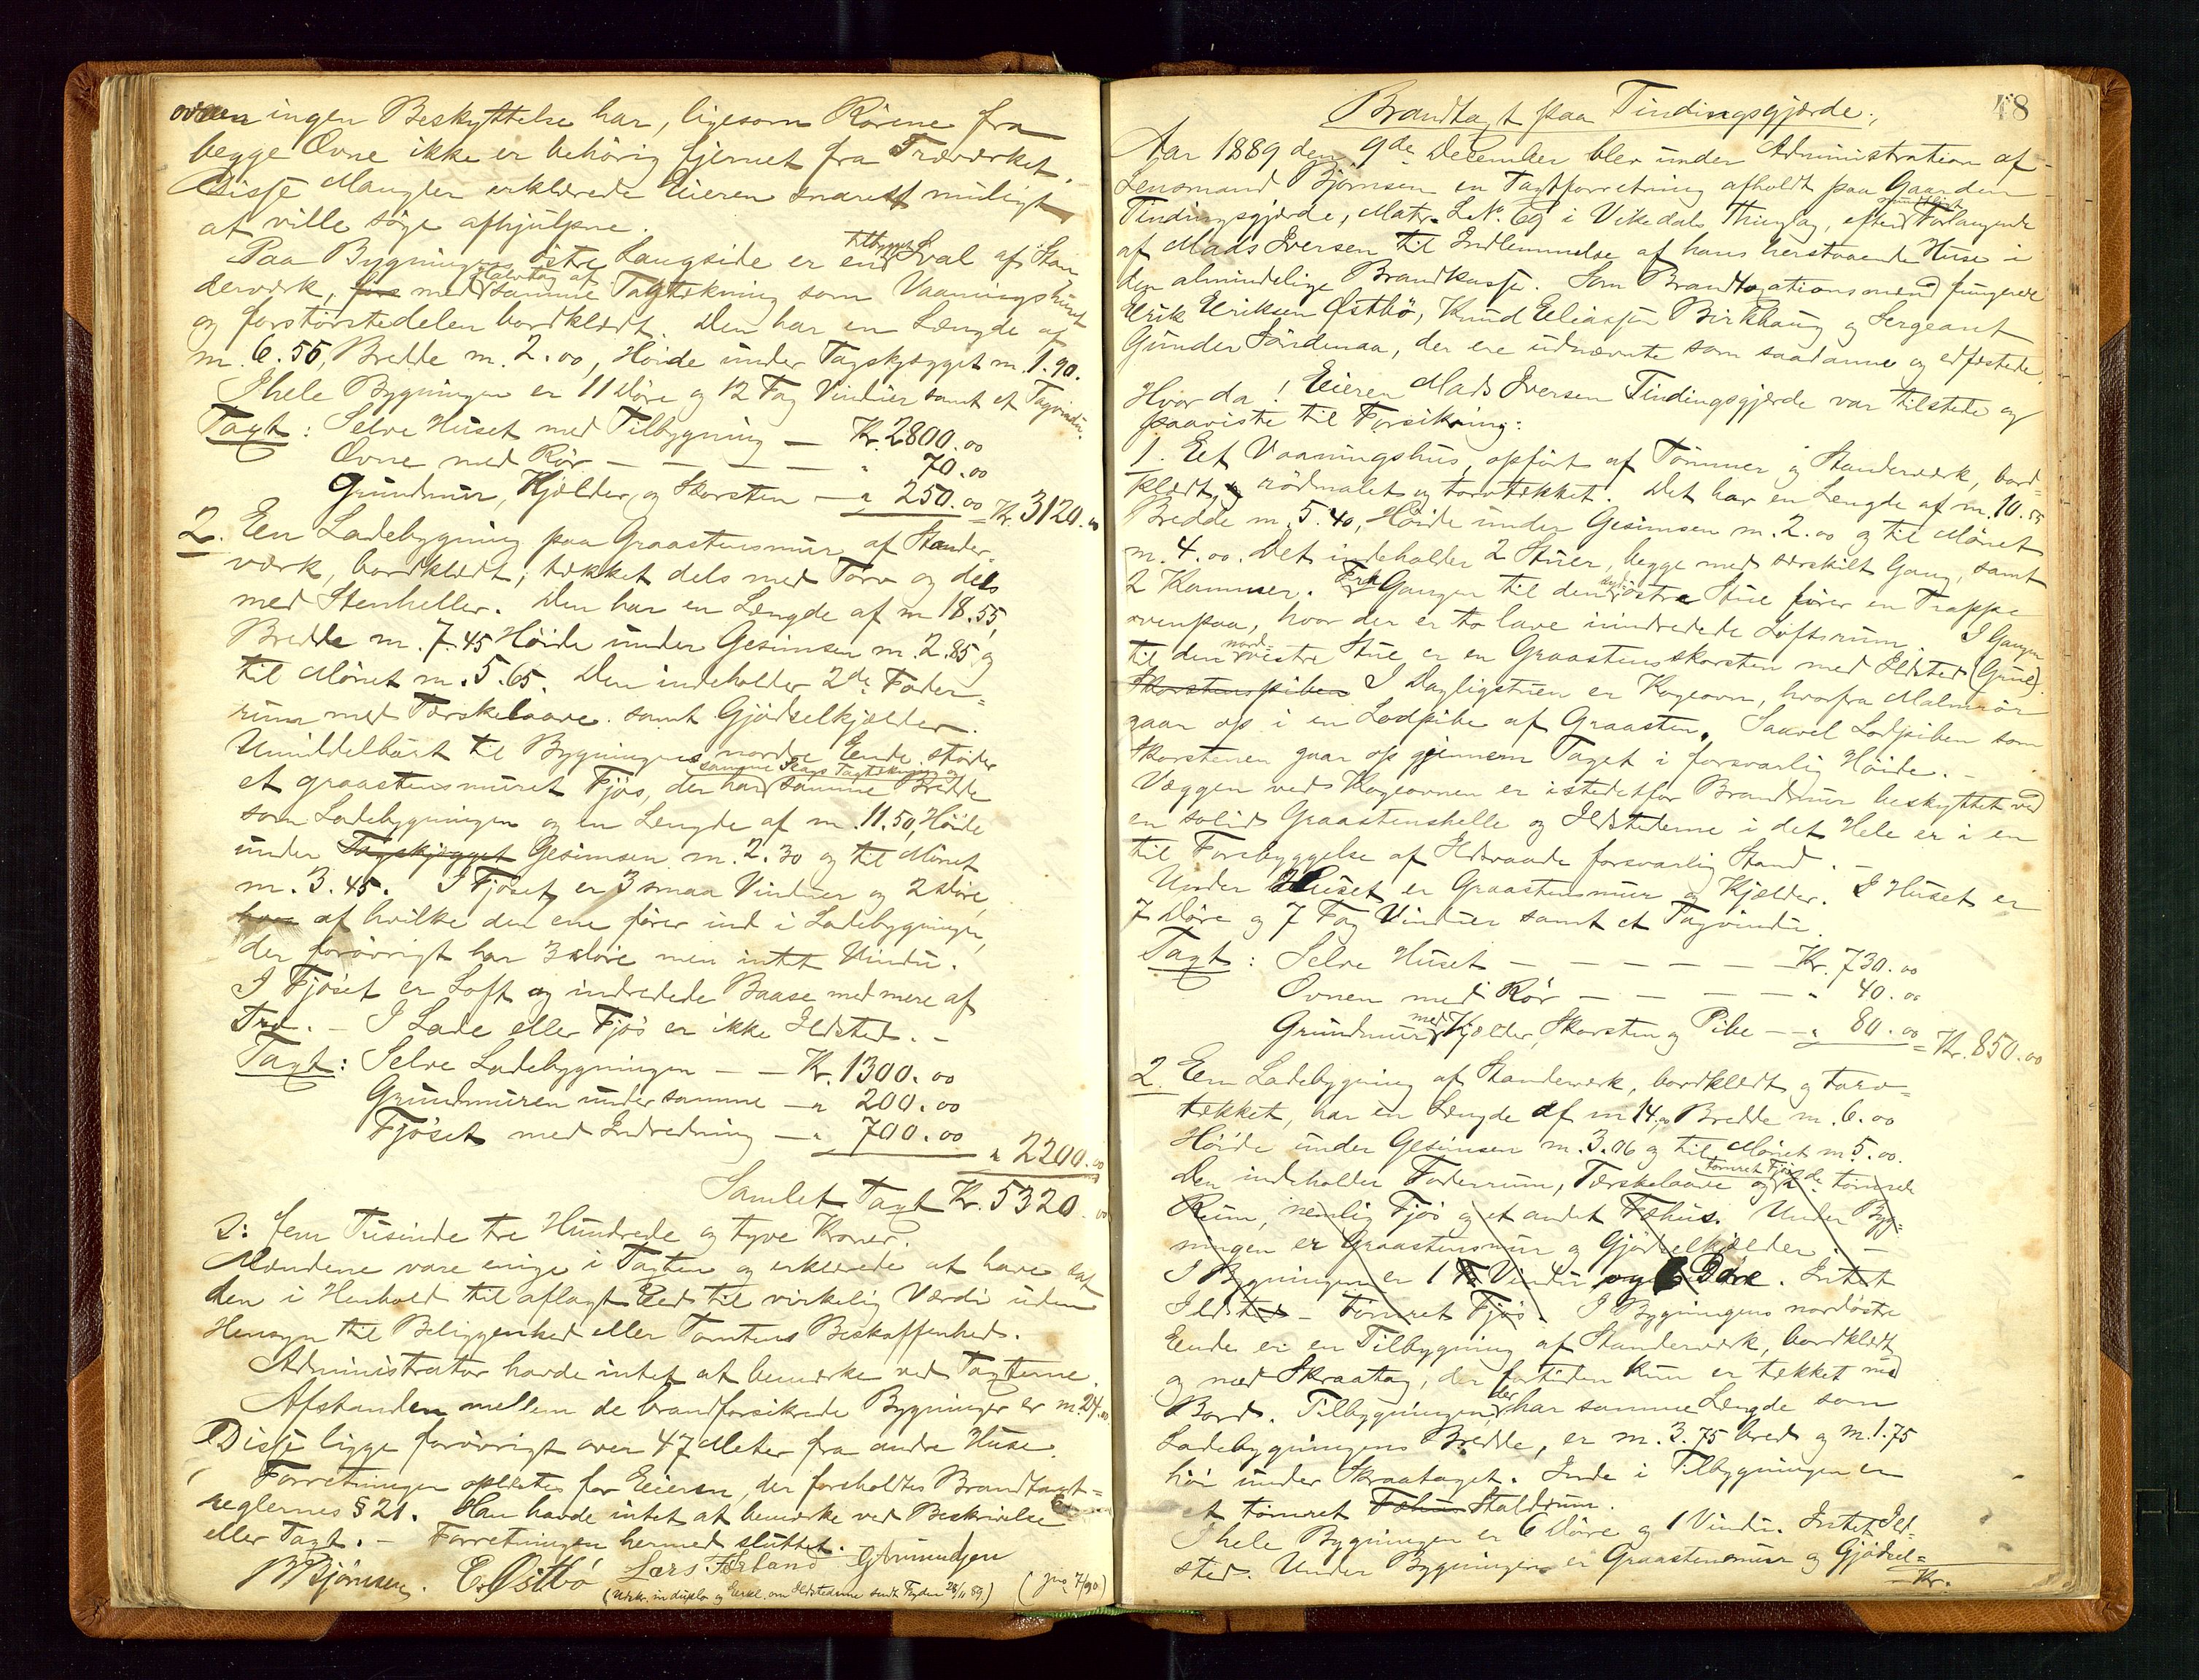 ovnen ingen Beskyttelse har, ligesom Rörene fra
begge Ovne ikke er behörig fjernet fra Træværket.
Disse Mangler erklærede Eieren snarest muligt
at ville söge afhjulpne.
Paa Bygningens östre Langside er en tilbygget Sval af Stan
derværk, med Halvtag af samme Tagtækning som Vaaningshuset
og forstörstedelen bordklædt. Den har en Længde af
m. 6.55, Bredde m. 2.00, Höide under Tagskjægget m. 1.90.
I hele Bygningen er 11 Döre og 12 Fag Vinduer samt et Tagvindu.
Taxt: Selve Huset med Tilbygning — Kr. 2800.00
Ovne med Rör — — — — — " 70.00
Grundmur, Kjælder og Skorsten — " 250.00 = Kr. 3120.00
2. Een Ladebygning paa Graastensmur af Stander-
værk, bordklædt; tækket dels med Torv og dels
med Stenheller. Den har en Længde af m 18.55,
Bredde m. 7.45 Höide under Gesimsen m. 2.85 og
til Mönet m. 5.65. Den indeholder 2de Foder=
rum med Tærskelaave samt Gjödselkjælder.
Umiddelbart til Bygningens nordre Ende stöder
et graastensmuret Fjös, der har samme Slags Tagtækning og samme Bredde
som Ladebygningen og en Længde af m. 11.50, Höide
under Tagskjægget Gesimsen m. 2.30 og til Mönet
m. 3.45. I Fjöset er 3 smaa Vinduer og 2 Döre,
hvor af hvilke den ene förer ind i Ladebygningen,
der forövrigt har 3 Döre men intet Vindu.
I Fjöset er Loft og indredede Baase med mere af
Træ. – I Lade eller Fjös er ikke Ildsted. –
Taxt: Selve Ladebygningen — — Kr. 1300.00
Grundmuren under samme — " 200.00
Fjöset med Indredning — " 700.00
" 2200.00
Samlet Taxt Kr. 5320.00
ɔ: fem Tusinde tre Hundrede og tyve Kroner.
Mændene vare enige i Taxten og erklærede at have sat
den i Henhold til aflagt Eed til virkelig Værdi uden
Hensyn til Beliggenhed eller Tomtens Beskaffenhed.
Administrator havde intet at bemærke ved Taxterne.
Afstanden mellem de brandforsikrede Bygninger er m. 24.00
Disse ligge forövrigt over 47 Meter fra andre Huse.
Forretningen oplæstes for Eieren, der foreholdtes Brandtaxt=
reglernes § 21. Han havde intet at bemærke ved Beskrivelse
eller Taxt. – Forretningen hermed sluttet.
B Björnsen. E. Östbö Lars
(Udskr. in duplo og Erkl. om Ildstederne sendt Fogden 28/11 89.) (7/90)
48
Brandtaxt paa Tindingsgjærde.,
Aar 1889 den 9de December blev under Administration af
Lensmand Björnsen en Taxtforretning afholdt paa Gaarden
Tindingsgjærde, Matr. L.No. 69 i Vikedals Thinglag, efter mundtligt Forlangende
af Mads Iversen til Indlemmelse af hans herstaaende Huse i
den almindelige Brandkasse. Som Brandtaxationsmænd fungerede
Erik Eriksen Østbö, Knud Eliassen Birkhaug og Sergeant
Gunder Sördenaa, der ere udnævnte som saadanne og edfæstede.
Hvor da! Eieren Mads Iversen Tindingsgjærde var tilstede og
paaviste til Forsikring:
1. Eet Vaaningshus, opfört af Tömmer og Standerværk, bord=
klædt, rödmalet og torvtækket. Det har en Længde af m. 10.55
Bredde m. 5.40, Höide under Gesimsen m. 2.00 og til Mönet
m. 4.00. Det indeholder 2 Stuer, begge med særskilt Gang, samt
2 Kammer. Fra Gangen til den östre Stue förer en Trappe
ovenpaa, hvor der er to lave uindredede Loftsrum. I Gangen
til den nordvestre Stue er en Graastensskorsten med Ildsted (Grue).
Skorstenspiben I Dagligstuen er Kogeovn, hvorfra Malmrör
gaar op i en Lodpibe af Graasten. Saavel Lodpiben som
Skorstenen gaar op gjennem Taget i forsvarlig Höide. –
Væggen ved Kogeovnen er istedetfor Brandmur beskyttet ved
en solid Graastenshelle og Ildstederne i det Hele er i en
til Forebyggelse af Ildsvaade forsvarlig Stand. –
Under Huset er Graastensmur og Kjælder. I Huset er
7 Döre og 7 Fag Vinduer samt et Tagvindu.
Taxt: Selve Huset — — — — — — Kr. 730.00
Ovnen med Rör — — — — — " 40.00
Grundmur med Kjælder, Skorsten og Pibe — " 80.00 = Kr. 850.00
2. Een Ladebygning af Standerværk, bordklædt og torv=
tækket, har en Længde af m 14.00 Bredde m. 6.00
Höide under Gesimsen m. 3.06 og til Mönet m. 5.00.
Den indeholder Foderrum, Tærskelaave og tömret Fjös 2de tömrede
Rum, nemlig Fjös og et andet Fæhus. Under Byg=
ningen er Graastensmur og Gjödselkjælder. –
I Bygningen er 1 Vindu og Döre. Intet
Ildsted – Tömret Fjös. I Bygningens nordöstre
Ende er en Tilbygning af Standerværk, bordklædt
og med Skraatag, der fortiden kun er tækket med
Bord. Tilbygningen, der har samme Længde som
Ladebygningens Bredde, er m. 3.75 bred og m. 1.75
höi under Skraataget. Inde i Tilbygningen er
et tömret Fæhus Staldrum.
I hele Bygningen er 6 Döre og 1 Vindu. Intet Ild-
sted. Under Bygningen er Graastensmur og Gjödsel=
Kr.